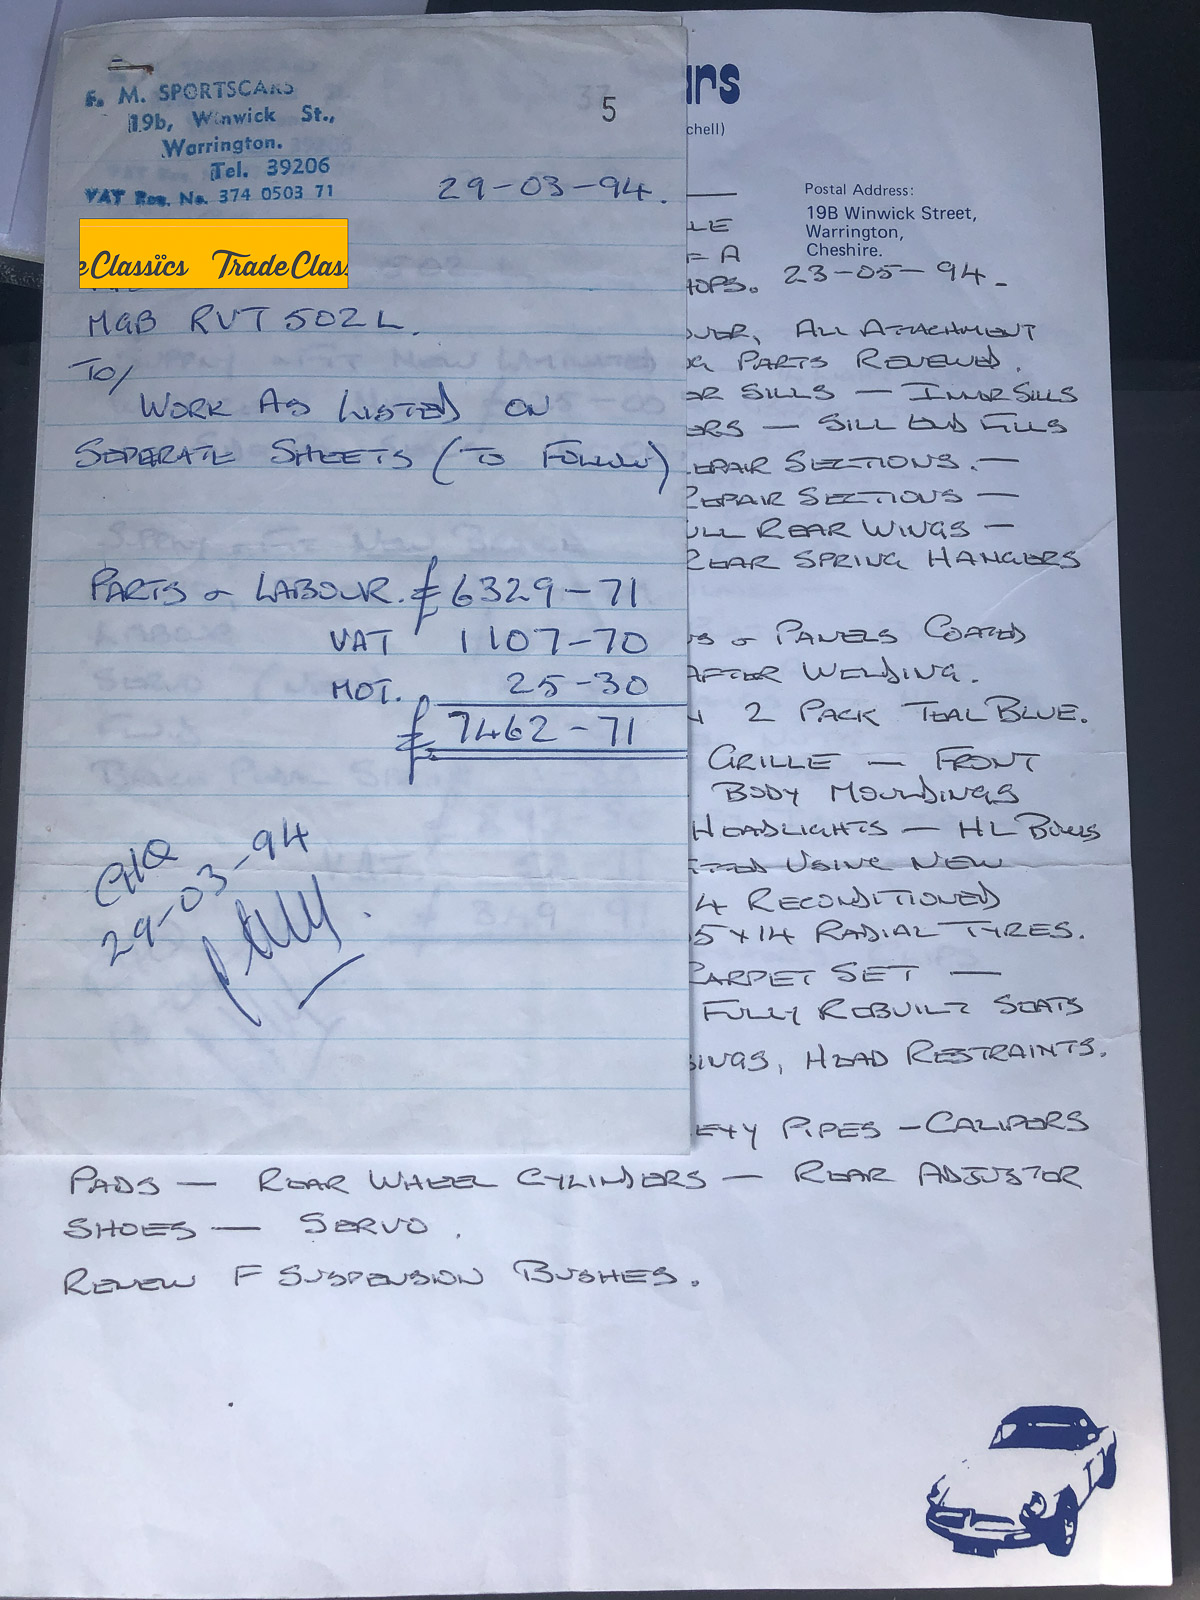 F. M. SPORTSCARS
19b, Winwick St.,
Warrington.
Tel. 39206
VAT Reg. No. 374 0503 71
5
29-03-94.
e Classics Trade Clas
MGB RVT 502L.
TO/
WORK AS LISTED ON
SEPERATE SHEETS (TO FOLLOW)
PARTS & LABOUR. £6329-71
VAT 1107-70
MOT. 25-30
£7462-71
CHQ
29-03-94
ars
chell)
Postal Address:
19B Winwick Street,
Warrington,
Cheshire.
LE
F A
HOPS. 23-05-94.
OVER, ALL ATTACHMENT
PARTS RENEWED.
OR SILLS — INNER SILLS
ERS — SILL END FILLS
EPAIR SECTIONS. —
REPAIR SECTIONS —
ULL REAR WINGS —
REAR SPRING HANGERS
& PANELS COATED
AFTER WELDING.
N 2 PACK TEAL BLUE.
GRILLE — FRONT
BODY MOULDINGS
HEADLIGHTS — HL BOWLS
TTED USING NEW
4 RECONDITIONED
5 x 14 RADIAL TYRES.
CARPET SET —
FULLY REBUILT SEATS
INGS, HEAD RESTRAINTS.
PIPES - CALIPERS
PADS — REAR WHEEL CYLINDERS — REAR ADJUSTOR
SHOES — SERVO.
RENEW F SUSPENSION BUSHES.